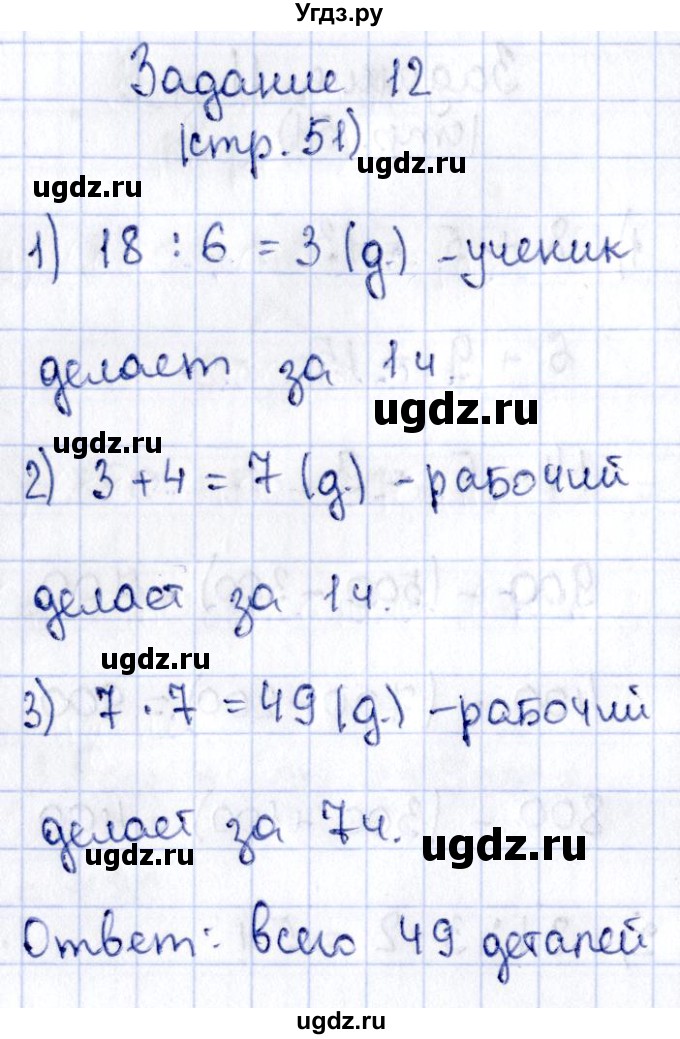 Угдз.ру
Задание 12
(стр. 51)
ugdz.ru
ugdz.ru
1) 18 : 6 = 3 (д.) - ученик
делает за 1ч.
ugdz.ru
ugdz.ru
2) 3 + 4 = 7 (д.) - рабочий
делает за 1ч.
ugdz.ru
3) 7 · 7 = 49 (д.) - рабочий
делает за 7ч.
ugdz.ru
ugdz.ru
Ответ: всего 49 деталей
ugdz.ru